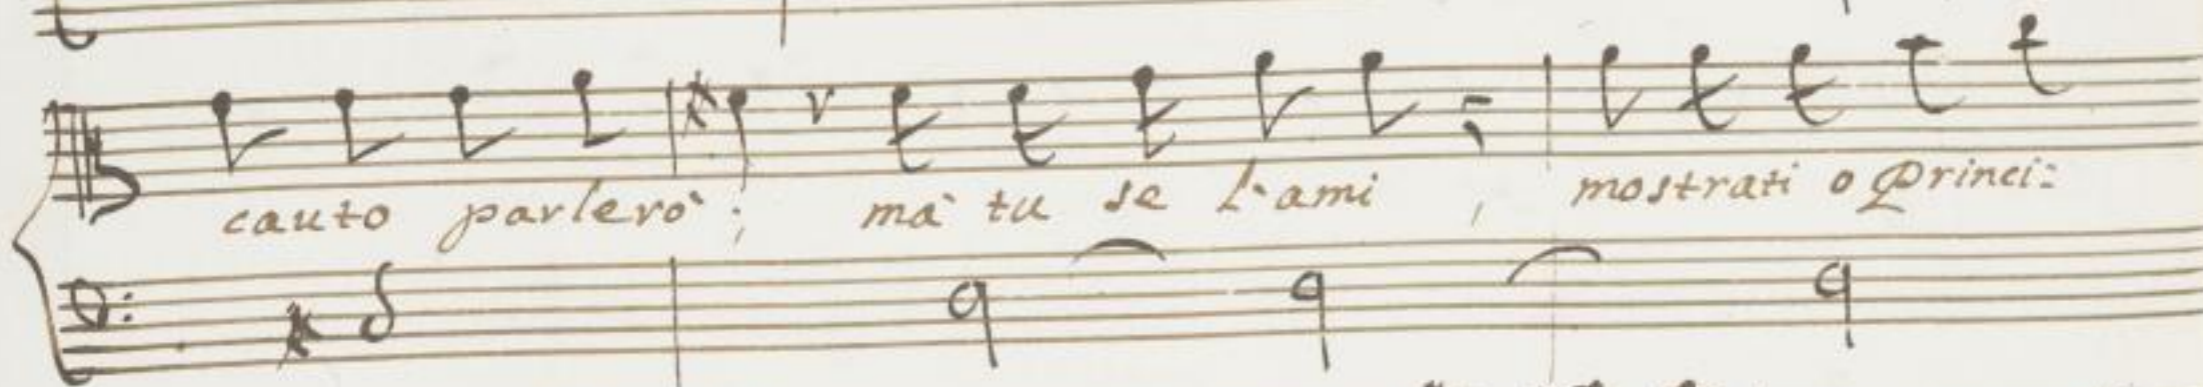 cauto parlerò; mà tu se l'ami, mostrati o Princi: